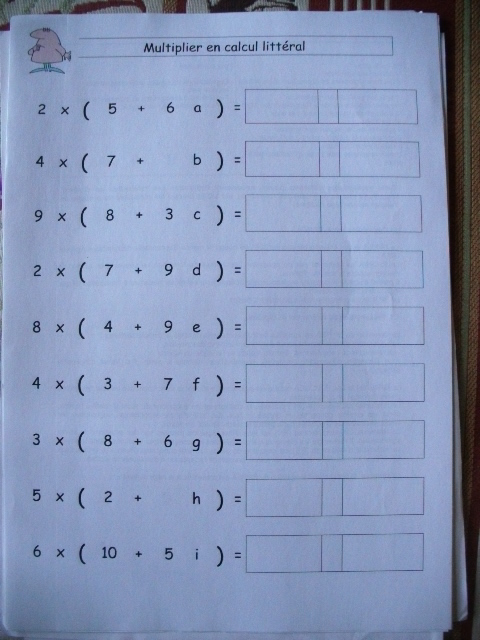 Multiplier en calcul littéral
2 x ( 5 + 6 a ) =
4 x ( 7 + b ) =
9 x ( 8 + 3 c ) =
2 x ( 7 + 9 d ) =
8 x ( 4 + 9 e ) =
4 x ( 3 + 7 f ) =
3 x ( 8 + 6 g ) =
5 x ( 2 + h ) =
6 x ( 10 + 5 i ) =